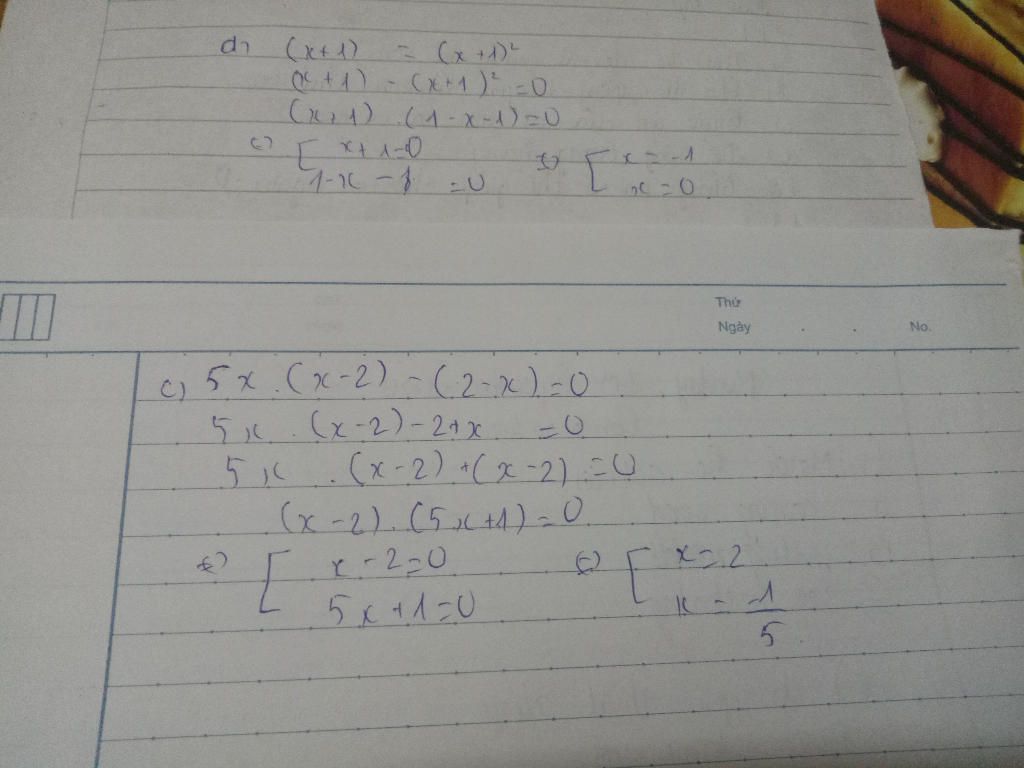 d) (x+1) = (x+1)²
(x+1) - (x+1)² =0
(x+1) . (1-x-1)=0
[ x+1=0 [ x=-1
1-x-1 =0 x=0
Thứ
Ngày . . No.
c) 5x . (x-2) - (2-x)=0
5x . (x-2)-2+x =0
5x . (x-2)+(x-2) =0
(x-2) . (5x+1)=0
[ x-2=0 [ x=2
5x+1=0 x = -1/5